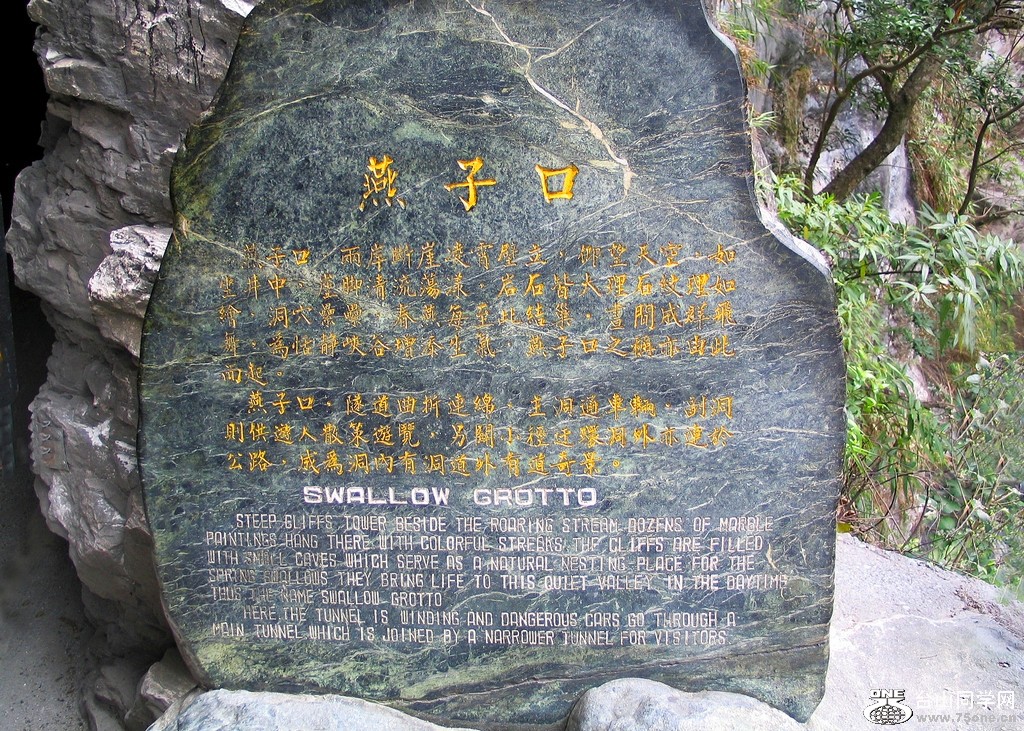 燕子口
燕子口，兩岸斷崖凌霄壁立，仰望天空，如
坐井中，崖腳清流蕩漾，岩石皆大理石紋理如
繪，洞穴纍纍，春燕每至此結集，晝間成群飛
舞，為恬靜峽谷增添生氣，燕子口之稱亦由此
而起。
燕子口，隧道曲折連綿，主洞通車輛，副洞
則供遊人散策遊覽，另闢小徑迂迴洞外亦連於
公路，成為洞內有洞道外有道奇景。
SWALLOW GROTTO
STEEP CLIFFS TOWER BESIDE THE ROARING STREAM. DOZENS OF MARBLE
PAINTINGS HANG THERE WITH COLORFUL STREAKS. THE CLIFFS ARE FILLED
WITH SMALL CAVES WHICH SERVE AS A NATURAL NESTING PLACE FOR THE
SPRING SWALLOWS. THEY BRING LIFE TO THIS QUIET VALLEY IN THE DAYTIME
THUS THE NAME SWALLOW GROTTO
HERE THE TUNNEL IS WINDING AND DANGEROUS CARS GO THROUGH A
MAIN TUNNEL WHICH IS JOINED BY A NARROWER TUNNEL FOR VISITORS
ONE
台山同学网
www.75one.cn